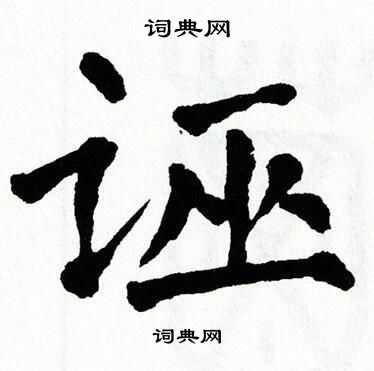 词典网
诬
词典网